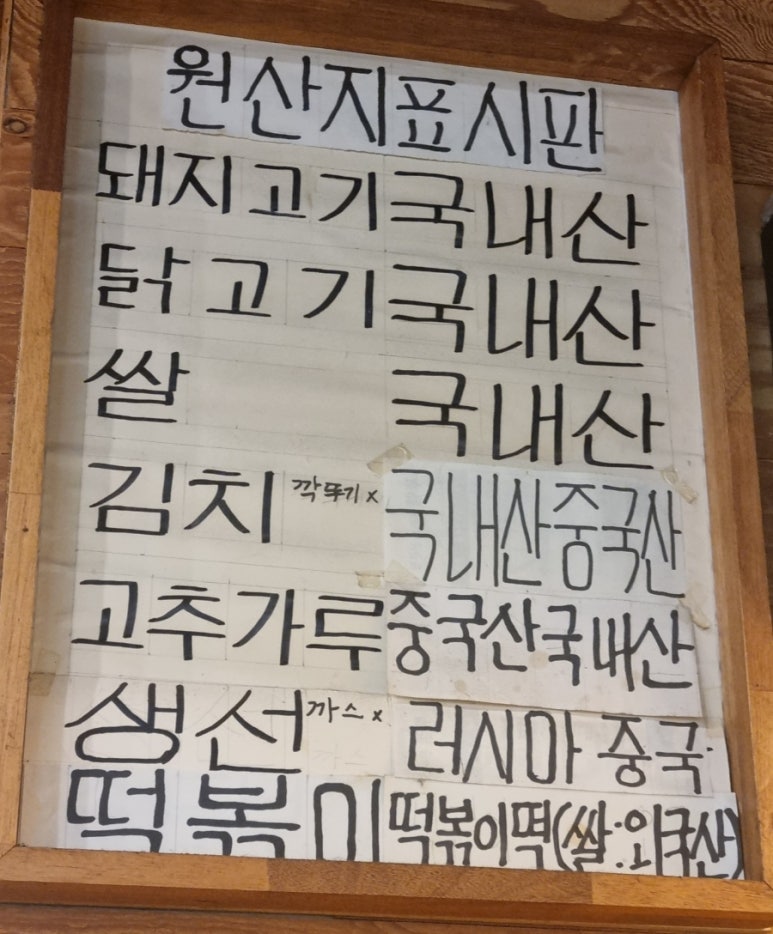 원산지표시판
돼지고기 국내산
닭고기 국내산
쌀 국내산
김치 깍뚜기 x 국내산 중국산
고추가루 중국산 국내산
생선 까스 x 러시아 중국
떡볶이 떡볶이떡(쌀:외국산)